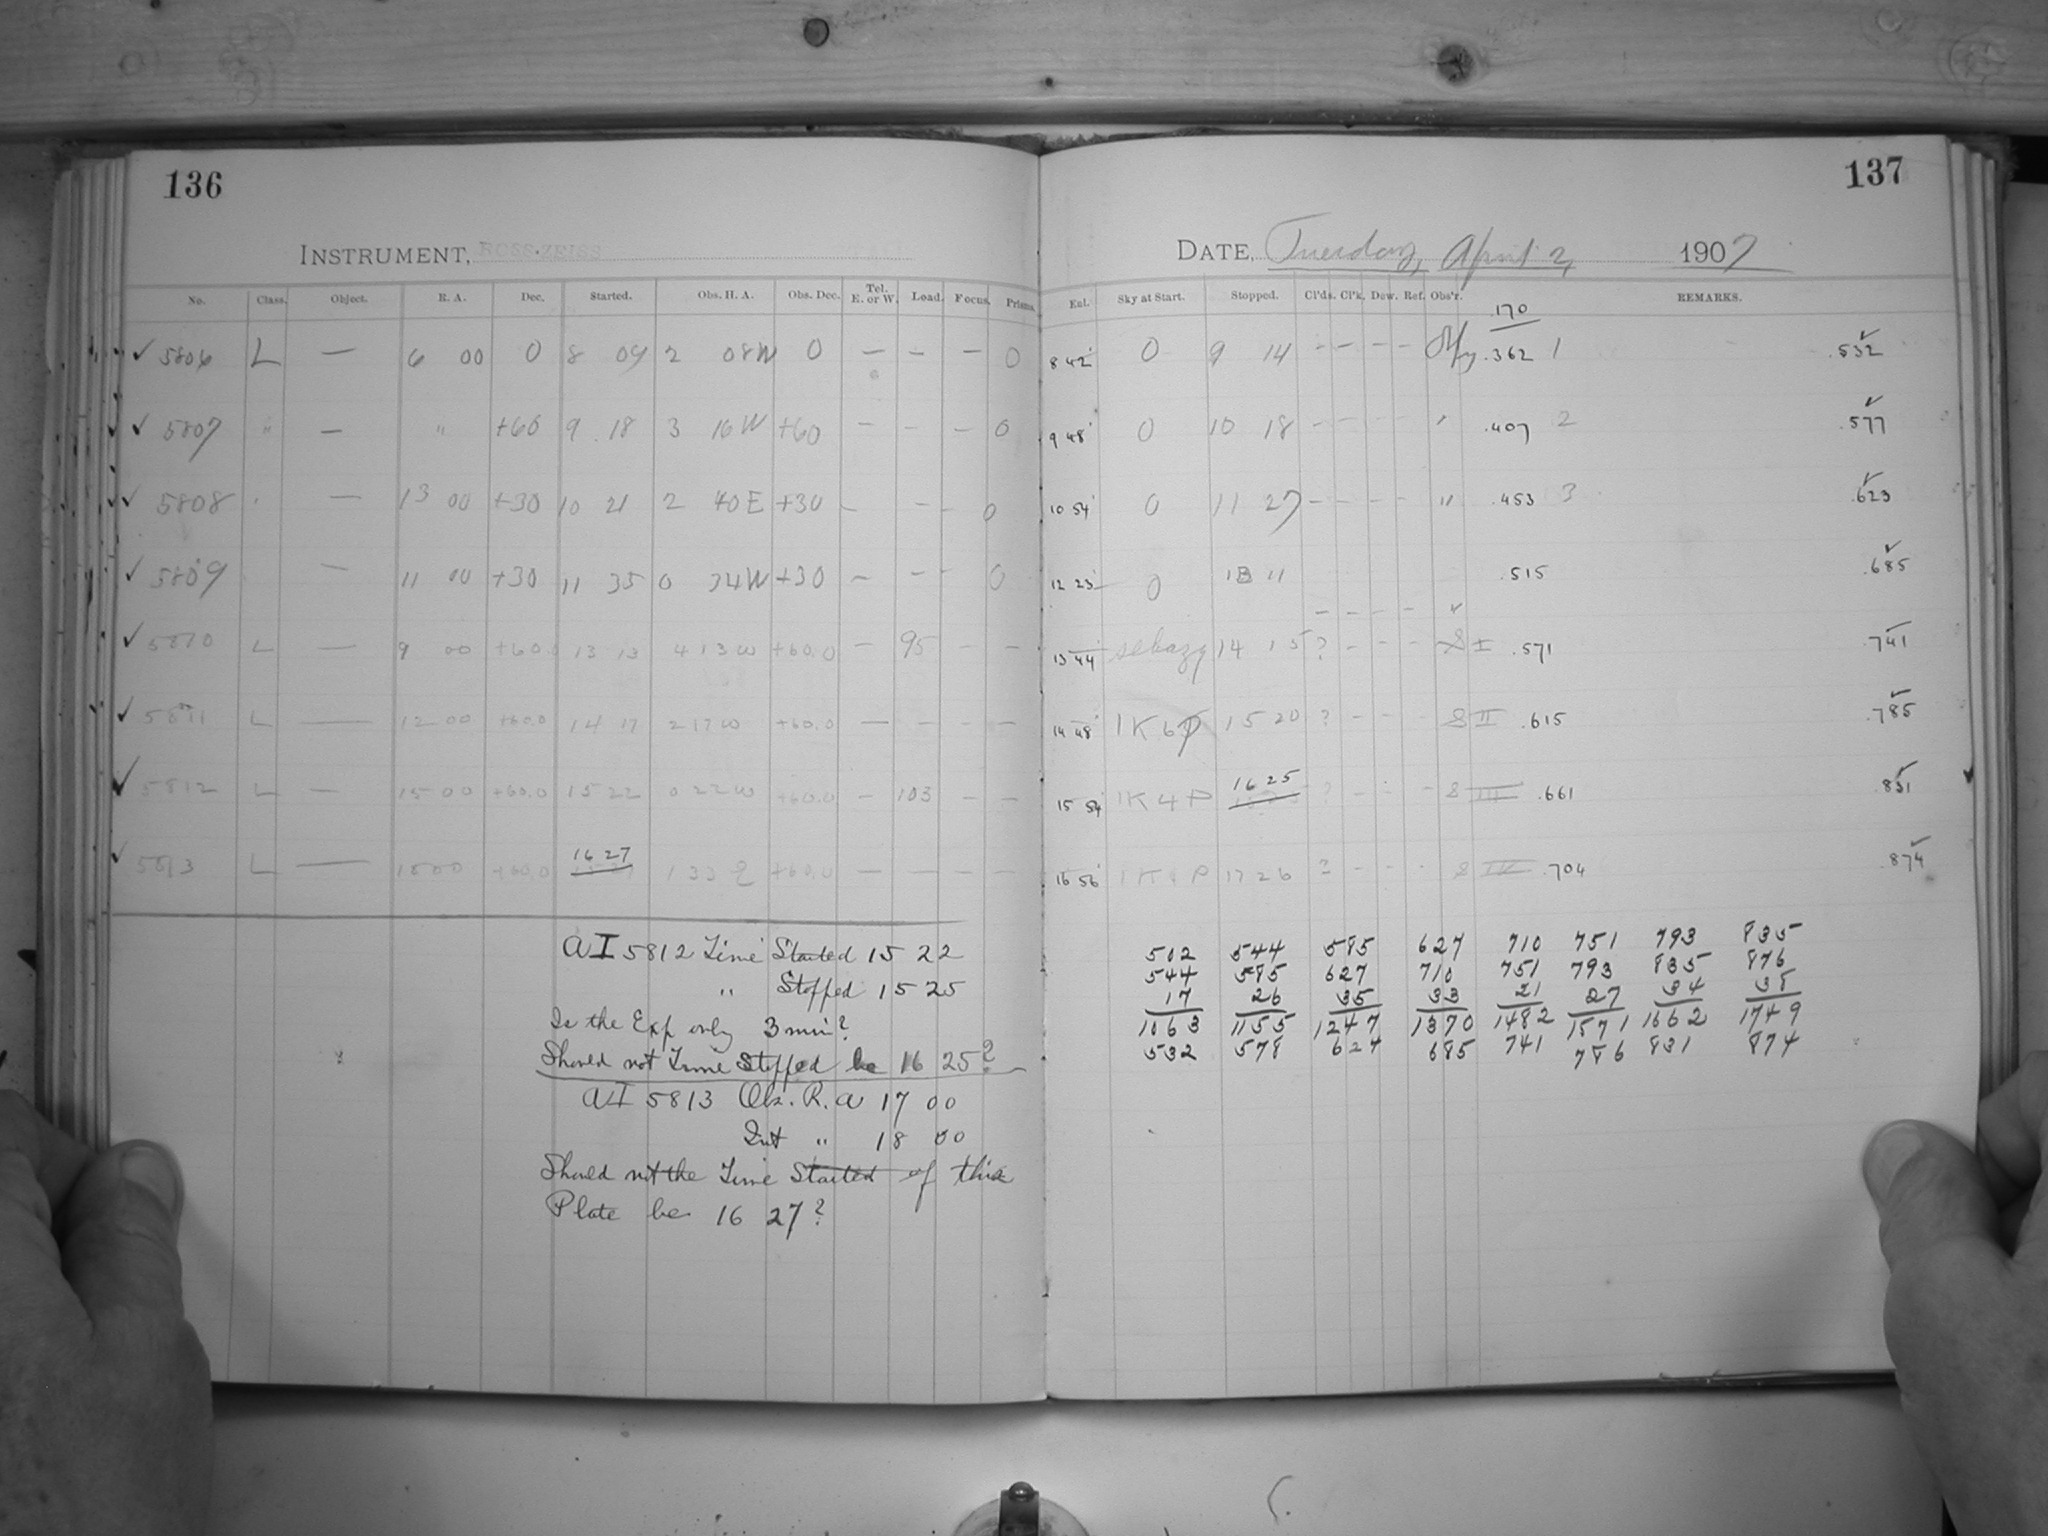 136
INSTRUMENT, ROSS-ZEISS
No. Class. Object. R. A. Dec. Started. Obs. H. A. Obs. Dec. Tel. E. or W. Load. Focus. Prisms.
✓ 5806 L — 6 00 0 8 09 2 08W 0 — — — 0
✓ 5807 " — " +60 9 18 3 16W +60 — — — 0
✓ 5808 " — 13 00 +30 10 21 2 40E +30 — — — 0
✓ 5809 — 11 00 +30 11 35 0 34W +30 — — — 0
✓ 5810 L — 9 00 +60.0 13 13 4 13W +60.0 — 95 — —
✓ 5811 L — 12 00 +60.0 14 17 2 17W +60.0 — — — —
✓ 5812 L — 15 00 +60.0 15 22 0 22W +60.0 — 103 — —
✓ 5813 L — 18 00 +60.0 16 27 1 33 E +60.0 — — — —
AI 5812 Time Started 15 22
" Stopped 15 25
Is the Exp only 3 min?
Should not Time Stopped be 16 25?
AI 5813 Obs. R. A 17 00
Int " 18 00
Should not the Time Started of this
Plate be 16 27?
137
DATE, Tuesday, April 2, 1907
Ent. Sky at Start. Stopped. Cl'ds. Cl'k. Dew. Ref. Obs'r. REMARKS.
.170
8 42 0 9 14 — — — — .362 1 .532
9 48 0 10 18 — — — — " .407 2 .577
10 54 0 11 27 — — — — " .453 3 .623
12 23 0 13 11 — — — — " .515 .685
13 44 14 15 ? — — — S I .571 .741
14 48 1K6P 15 20 ? — — — S II .615 .785
15 54 1K4P 16 25 ? — — — S III .661 .831
16 56 1K4P 17 26 ? — — — S IV .704 .874
502 544 585 627 710 751 793 835
544 585 627 710 751 793 835 876
17 26 35 33 21 27 34 38
1063 1155 1247 1370 1482 1571 1662 1749
532 578 624 685 741 786 831 874